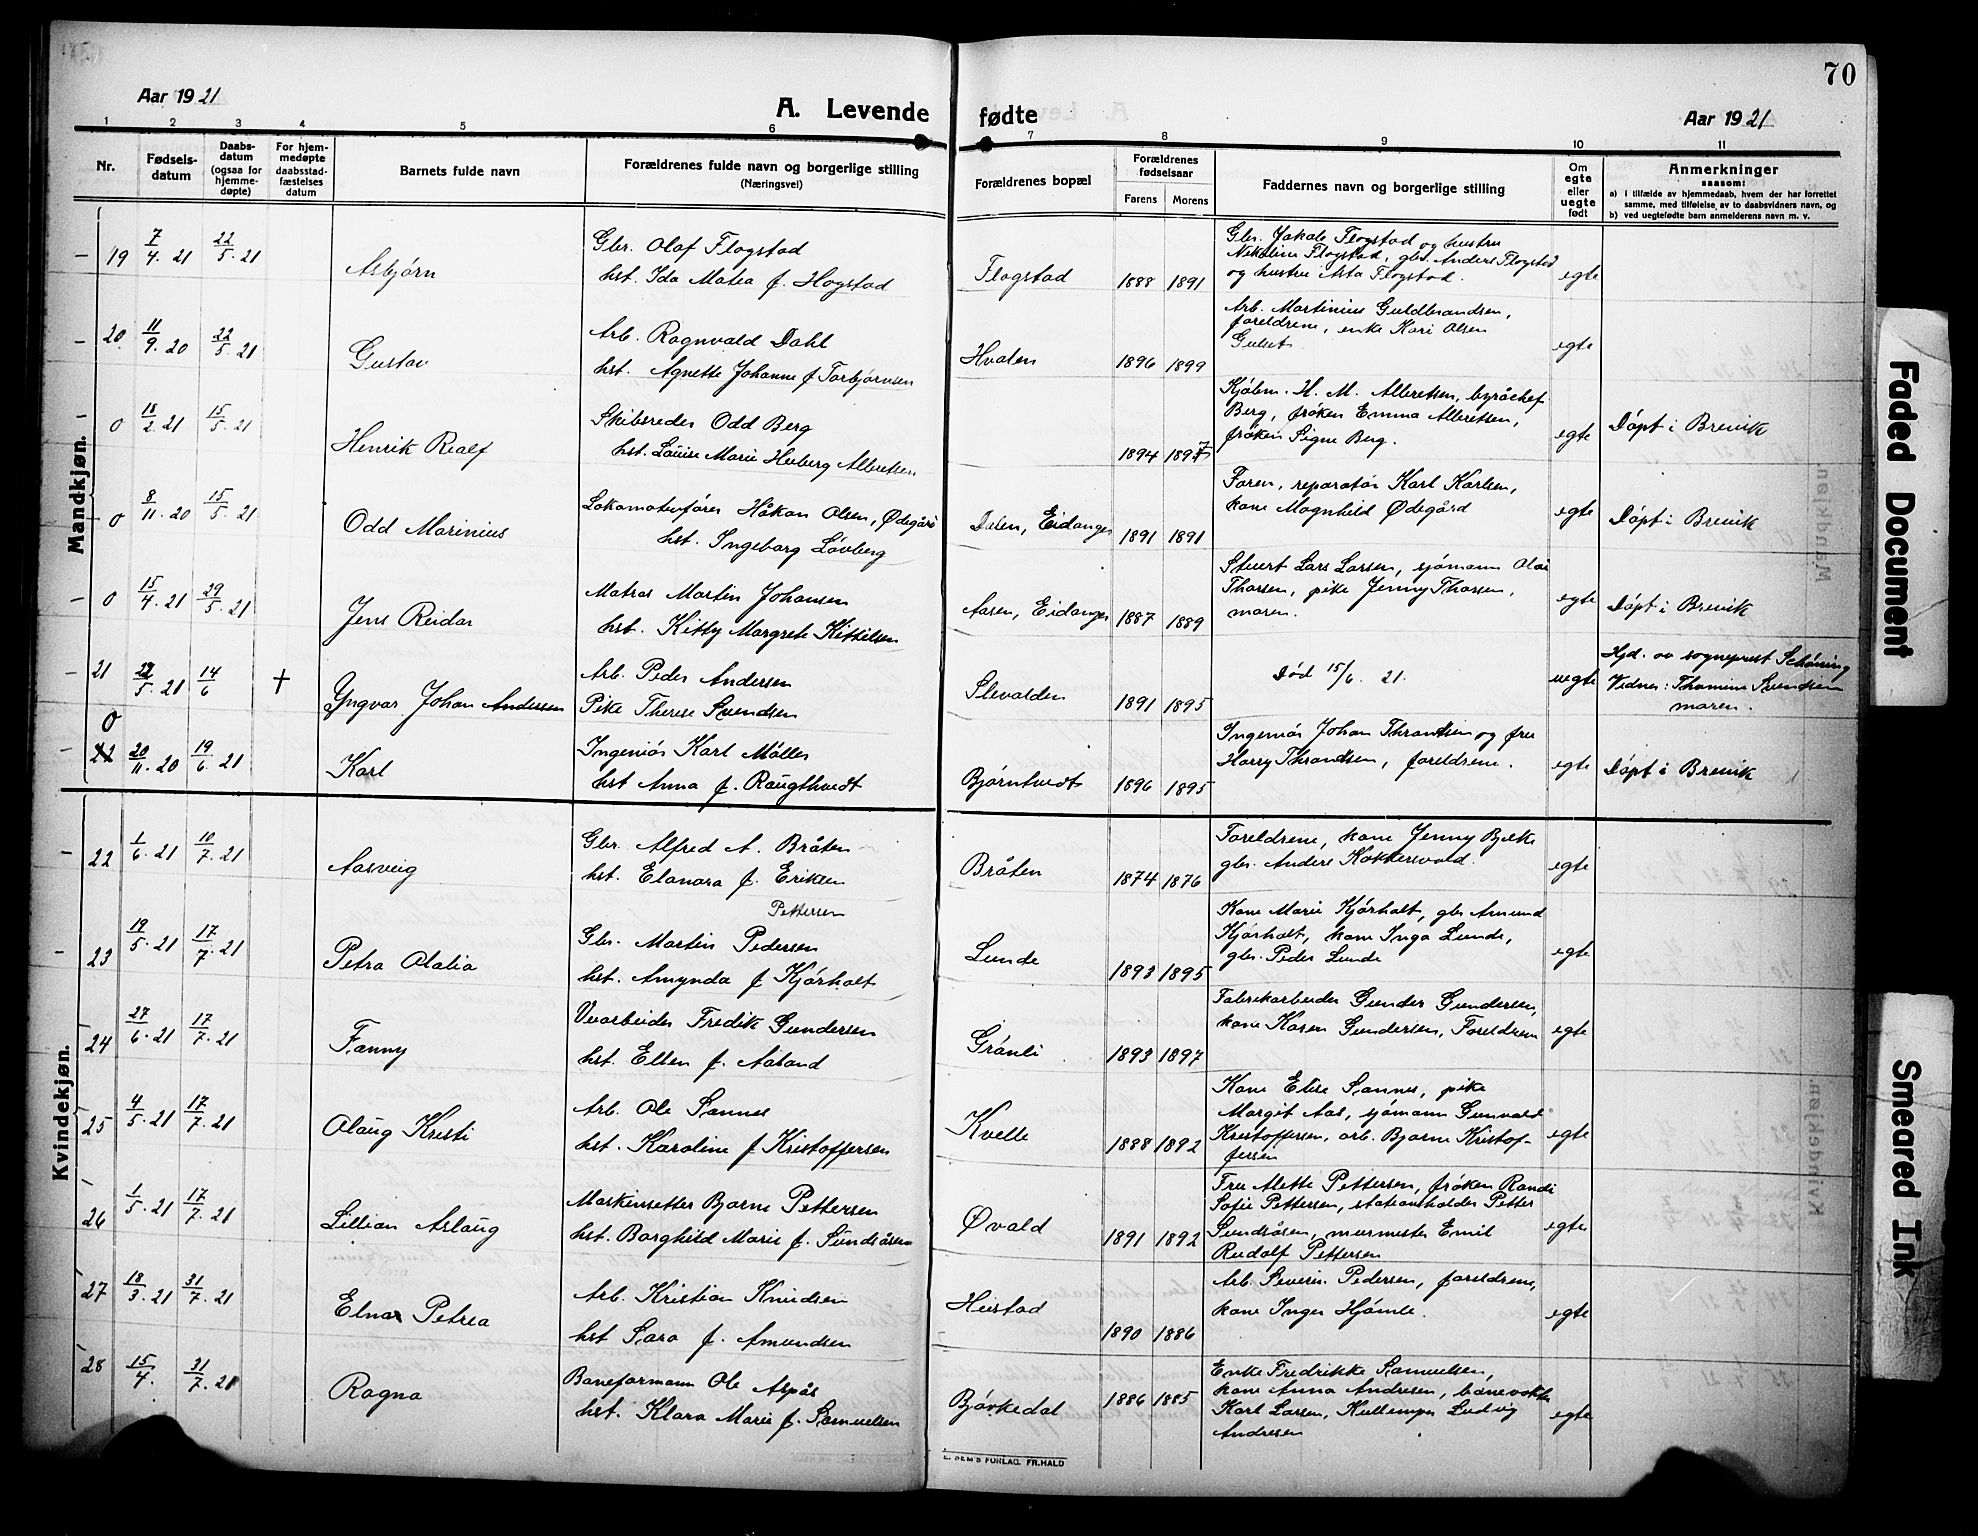 70
Aar 1921
A. Levende fødte
Aar 1921
1 2 3 4 5 6 7 8 9 10 11
Nr.
Fødsels-
datum
Daabs-
datum
(ogsaa for
hjemme-
døpte)
For hjem-
medøpte
daabsstad-
fæstelses
datum
Barnets fulde navn
Forældrenes fulde navn og borgerlige stilling
(Næringsvei)
Forældrenes bopæl
Forældrenes
fødselsaar
Farens Morens
Faddernes navn og borgerlige stilling
Om
egte
eller
uegte
født
Anmerkninger
saasom:
a) i tilfælde av hjemmedaab, hvem der har forrettet
samme, med tilføielse av to daabsvidners navn, og
b) ved uegtefødte barn anmelderens navn m. v.
Mandkjøn.
19 7/4. 21 22/5. 21 Asbjørn
Gbr. Olaf Flogstad
hst. Ida Matea f. Hogstad
Flogstad 1888 1891
Gbr. Jakob Flogstad og hustru
Nikoline Flogstad, gbr. Anders Flogstad
og hustru Asta Flogstad.
egte
20 11/9. 20 22/5. 21 Gustav
Arb. Ragnvald Dahl
hst. Agnette Johanne f. Torbjørnsen
Hvalen 1896 1899
Arb. Martinius Guldbrandsen,
foreldrene, enke Kari Olsen
Gulset
egte
0 18/2. 21 15/5. 21 Henrik Realf
Skibsreder Odd Berg
hst. Louise Marie Heiberg Albretsen
1894 1897
Kjøbm. H. M. Albretsen, byråchef
Berg, frøken Emma Albretsen,
frøken Signe Berg.
egte Døpt i Brevik
0 8/11. 20 15/5. 21 Odd Marinius
Lokomotivfører Håkon Olsen, Ødegård
hst. Ingeborg Løvberg
Dalen, Eidanger 1891 1891
Faren, reparatør Karl Karlsen,
kone Magnhild Ødegård
egte Døpt i Brevik
0 15/4. 21 29/5. 21 Jens Reidar
Matros Martin Johansen
hst. Kitty Margrete Kittilsen
Aasen, Eidanger 1887 1889
Stuert Lars Larsen, sjømann Olai
Thorsen, pike Jenny Thorsen,
moren.
egte Døpt i Brevik
21 22/5. 21 14/6 † Yngvar Johan Andersen
Arb. Peder Andersen
Pike Therese Svendsen
Slevolden 1891 1895
Død 15/6. 21.
uegte
Hjd. av sogneprest Schøning
Vidner: Thomine Svendsen
moren.
0
22 20/11. 20 19/6. 21 Karl
Ingeniør Karl Møller
hst Anna f. Raugthvedt
Bjørntvedt 1896 1895
Ingeniør Johan Throndsen og fru
Harry Throndsen, foreldrene.
egte Døpt i Brevik
Kvindekjøn.
22 1/6. 21 10/7. 21 Aasveig
Gbr. Alfred A. Bråten
hst. Elanora f. Eriksen
Bråten 1874 1876
Foreldrene, kone Jenny Bjelke
gbr. Anders Kokkersvold.
egte
23 19/5. 21 17/7. 21 Petra Otalia
Pettersen
Gbr. Martin Pedersen
hst. Amynda f. Kjørholt
Lunde 1893 1895
Kone Marie Kjørholt, gbr Amund
Kjørholt, kone Inga Lunde,
gbr. Peder Lunde
egte
24 27/6. 21 17/7. 21 Fanny
Veiarbeider Fredik Gundersen
hst. Ellen f. Aaland
Grønli 1893 1897
Fabrikarbeider Gunder Gundersen,
kone Karen Gundersen, Foreldrene
egte
25 4/5. 21 17/7. 21 Olaug Kristi
Arb. Ole Sannes
hst. Karoline f Kristoffersen
Kvelle 1888 1892
Kone Elise Sannes, pike
Margit Aas, sjømann Gunvald
Kristoffersen, arb. Bjarne Kristof-
fersen
egte
26 1/5. 21 17/7. 21 Lillian Aslaug
Maskinsetter Bjarne Pettersen
hst. Borghild Marie f. Sundsåsen
Øvald 1891 1892
Fru Alette Pettersen, frøken Randi
Sofie Pettersen, stationsholder Petter
Sundsåsen, murmester Emil
Rudolf Pettersen
egte
27 18/3. 21 31/7. 21 Elna Petrea
Arb. Kristian Knudsen
hst Sara f. Amundsen
Heistad 1890 1886
Arb. Severin Pedersen, foreldrene,
kone Inger Hjømle.
egte
28 15/4. 31/7. 21 Ragna
Baneformann Ole Aspås
hst. Klara Marie f. Samuelsen
Bjørkedal 1886 1885
Enke Fredrikke Samuelsen,
kone Anna Andresen, banevokter
Karl Larsen, Ludvig
Andresen
egte
E. SEM'S FORLAG. FR.HALD
Faded Document
Smeared Ink